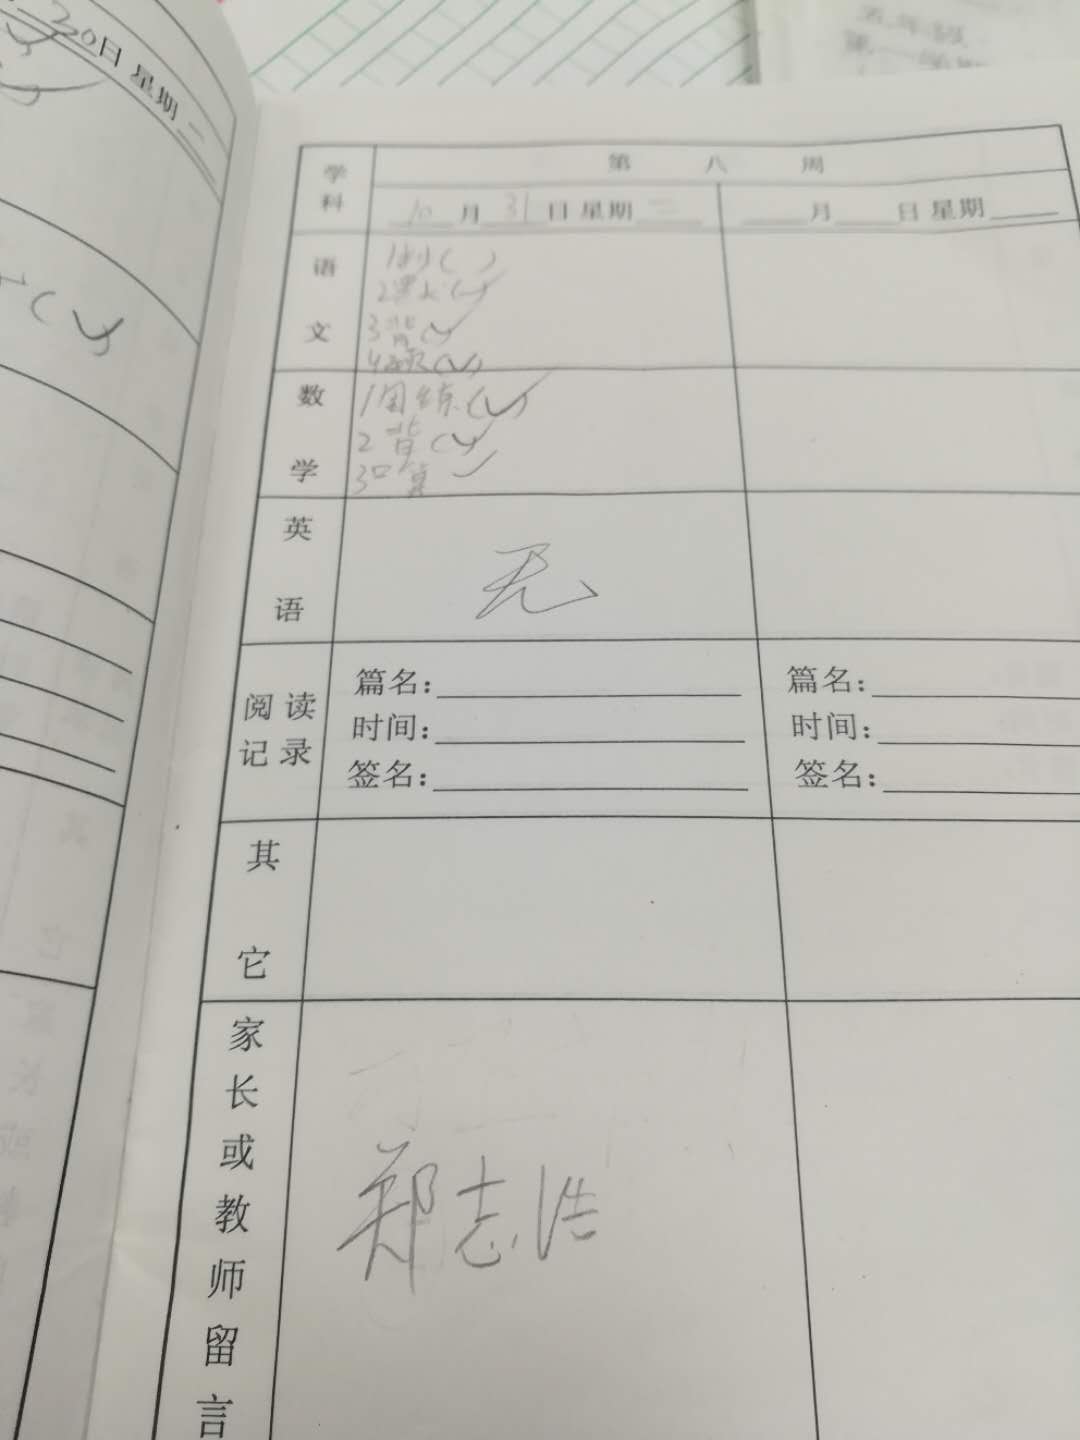 20日 星期二
五年级
学科
第 八 周
10月31日 星期二
月 日 星期
语文
2课文(✓)
3背(✓)
数学
1周练(✓)
2背(✓)
3口算 ✓
英语
无
阅读记录
篇名：
时间：
签名：
篇名：
时间：
签名：
其它
家长或教师留言
郑志浩